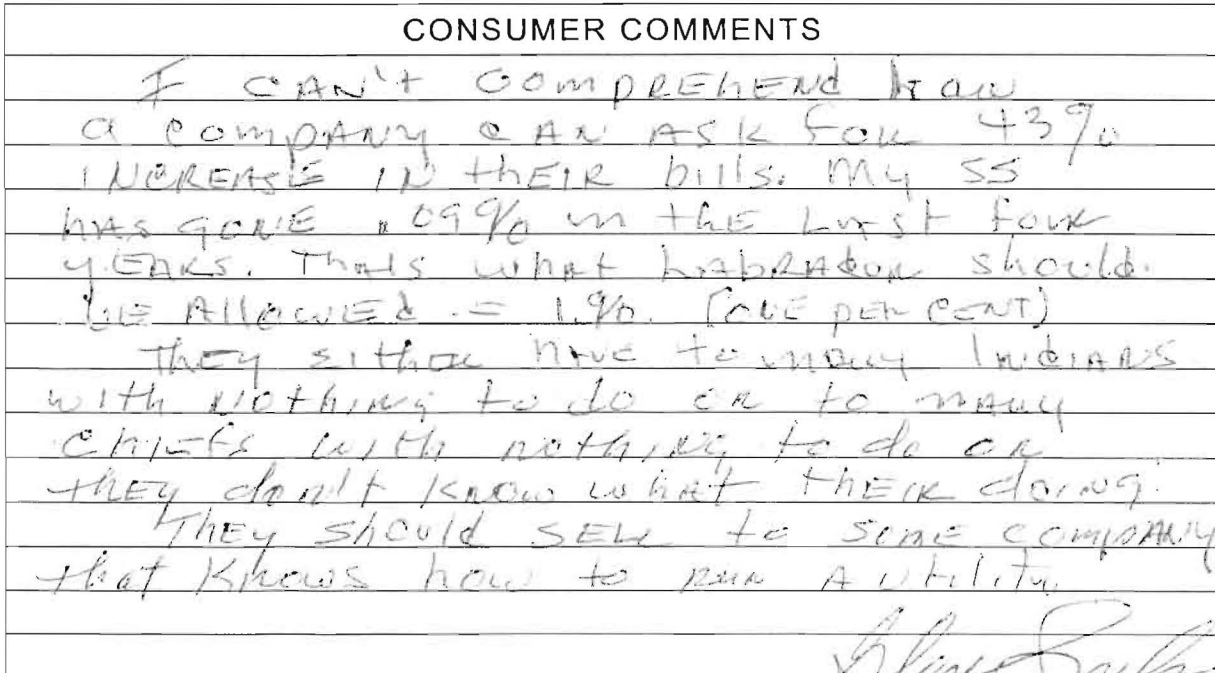 CONSUMER COMMENTS
I CAN't COMPREHEND How
a COMPANY CAN ASK FOR 43%
INCREASE IN thEIR bills. My SS
hAS GONE .09% in thE LAst Four
yEARS. Thats whAt LAbRADOR should
bE AllowEd = 1.% (ONE PER CENT)
They Either hAVE to mANy INdIANS
with Nothing to do OR to mANy
ChiEfs with nothing to do OR
thEy don't KNOW whAt thEIR doing.
ThEy should SELL to SOME COMPANy
that Knows how to RUN A utility.